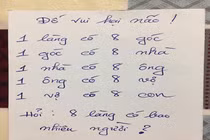 Đố vui hại não !
1 làng có 8 góc
1 góc có 8 nhà
1 nhà có 8 ông
1 ông có 8 vợ
1 vợ có 8 con
Hỏi : 8 làng có bao
nhiêu người ?